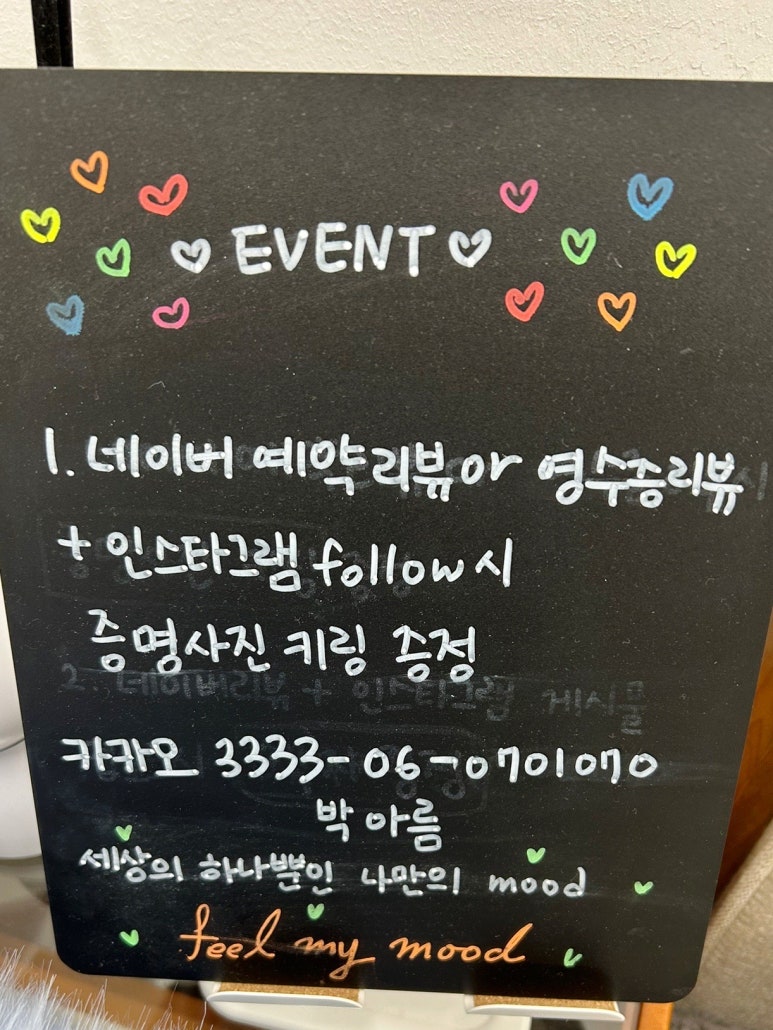 EVENT
1. 네이버 예약리뷰와 영수증리뷰
+ 인스타그램 follow시
증명사진 키링 증정
카카오 3333-06-0701070
박아름
세상의 하나뿐인 나만의 mood
feel my mood